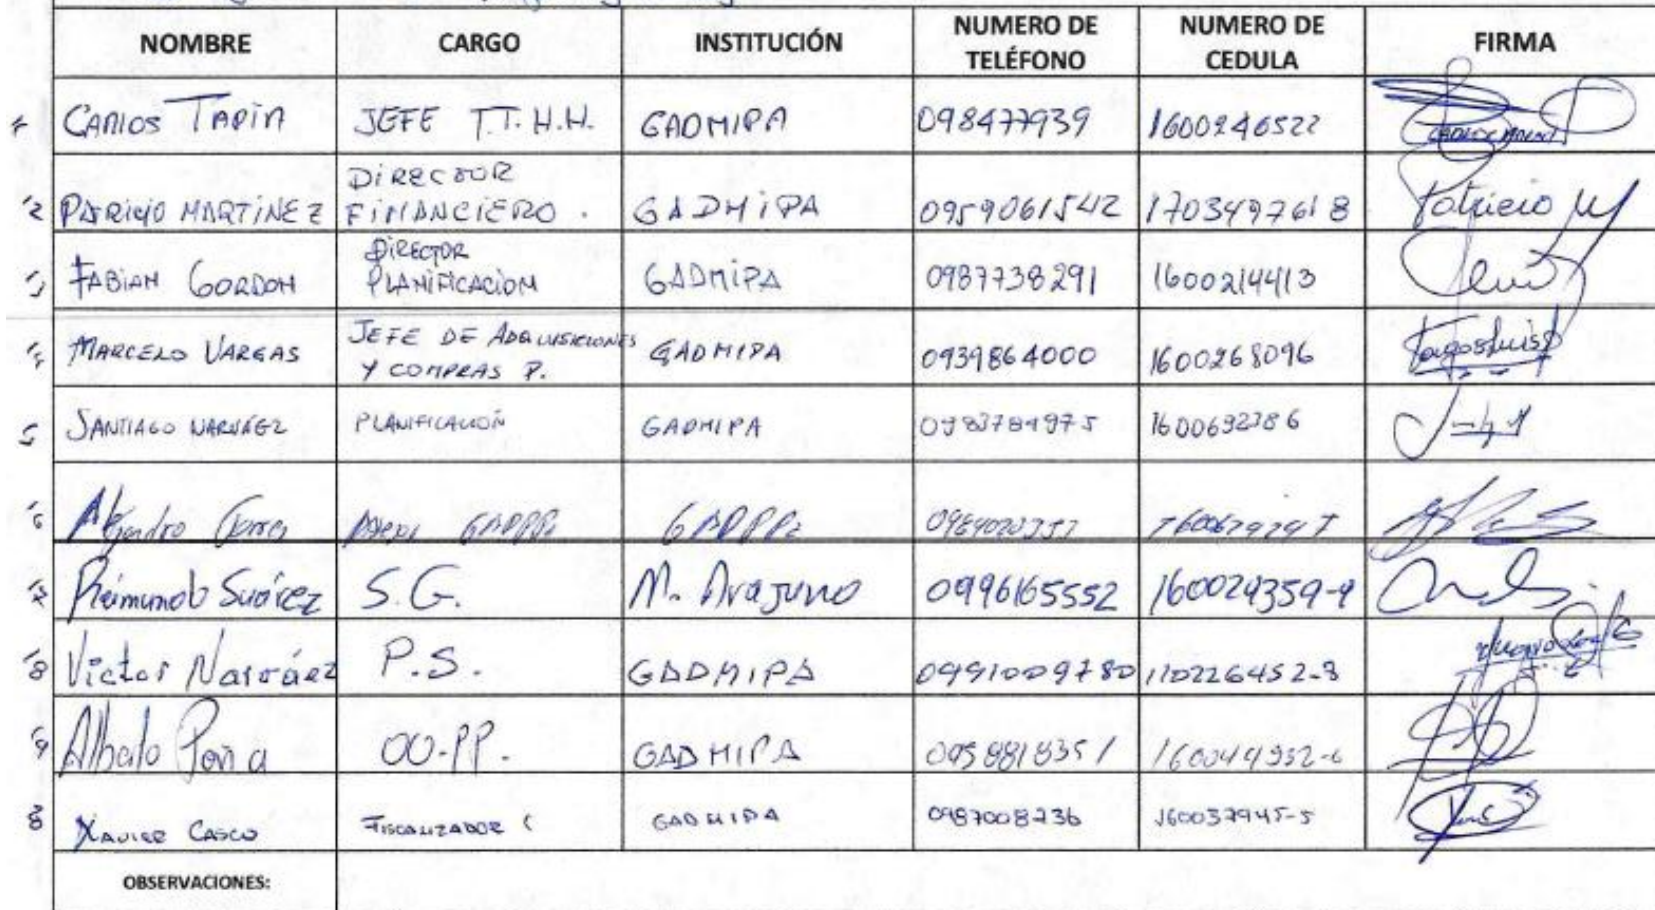 NOMBRE CARGO INSTITUCIÓN NUMERO DE TELÉFONO NUMERO DE CEDULA FIRMA
CARLOS TAPIA JEFE T.T.H.H. GADMIPA 098477939 1600246522
2 PATRICIO MARTINEZ DIRECTOR FINANCIERO. GADMIPA 0959061542 1703497618 Patricio M
3 FABIAN GORDON DIRECTOR PLANIFICACION GADMIPA 0987738291 1600214413
4 MARCELO VARGAS JEFE DE ADQUISICIONES Y COMPRAS P. GADMIPA 0939864000 1600268096
5 SANTIAGO NARVÁEZ PLANIFICACIÓN GADMIPA 0983784975 1600692386
6 Alejandro GADPPz GADPPz
7 Reimundo Suárez S.G. M. Arajuno 0996165552 160029359-9
8 Victor Narváez P.S. GADMIPA 0991009780 110226452-8
9 OO.PP. GADMIPA
8 XAVIER CASCO FISCALIZADOR GADMIPA 0987008236 160037945-5
OBSERVACIONES: